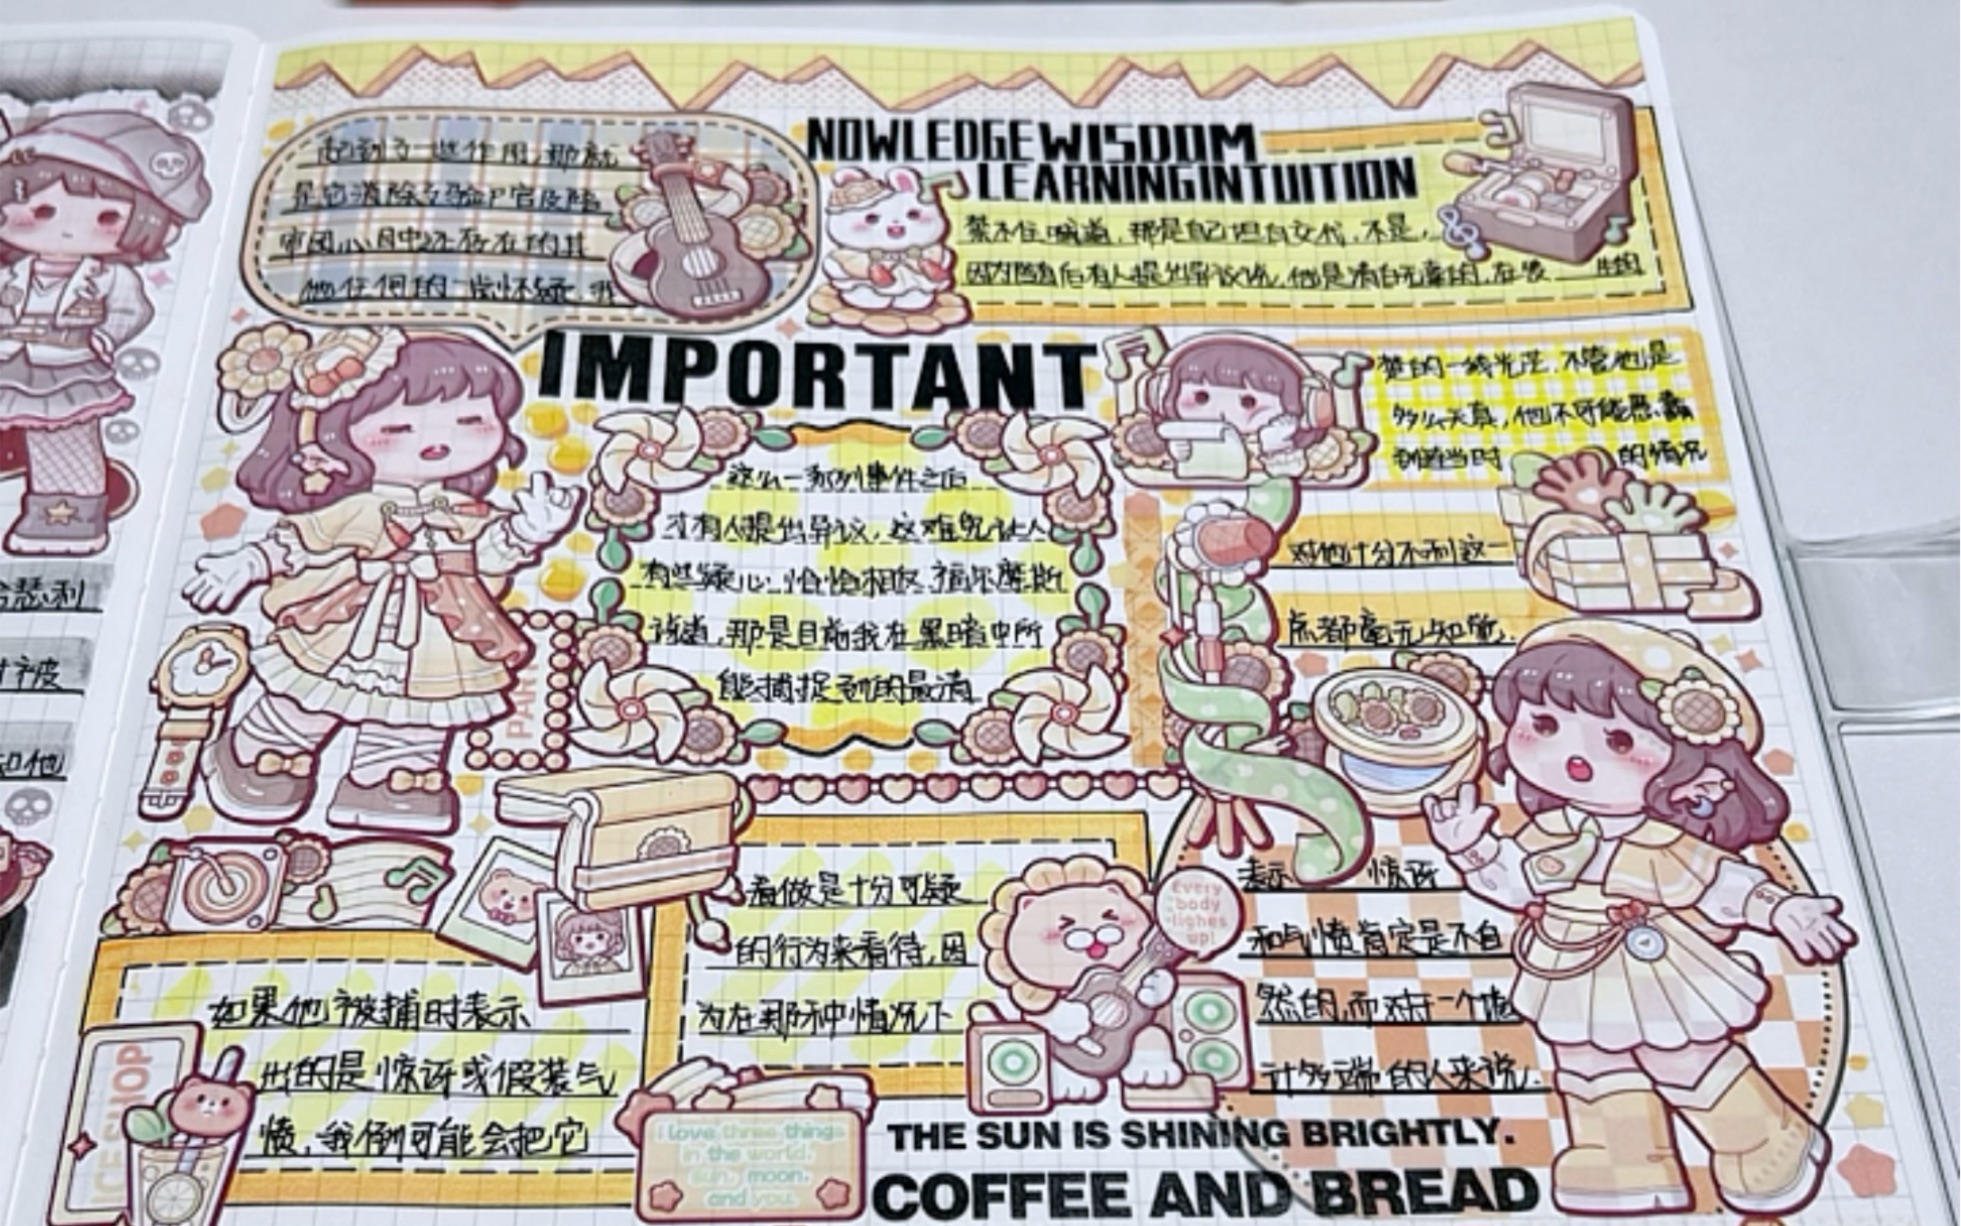 起到了一些作用，那就
是它消除了验尸官及陪
审团心目中还存在的其
他任何的一点怀疑，我
NOWLEDGE WISDOM
LEARNING INTUITION
禁不住喊道，那是自己坦白交代，不是，
因为随后有人提出异议说，他是清白无辜的，在发 生的
IMPORTANT
这么一系列事件之后
才有人提出异议，这难免让人
有些疑心，恰恰相反，福尔摩斯
说道，那是目前我在黑暗中所
能捕捉到的最清
楚的一线光芒，不管他是
多么天真，他不可能愚蠢
到连当时 的情况
对他十分不利这一
点都毫无知觉.
如果他被捕时表示
出的是惊讶或假装气
愤，我倒可能会把它
看做是十分可疑
的行为来看待，因
为在那种情况下
表示 惊讶
和气愤肯定是不自
然的，而对于一个诡
计多端的人来说.
Every
body
lighes
up!
ICE SHOP
I love three things
in the world.
sun, moon,
and you.
THE SUN IS SHINING BRIGHTLY.
COFFEE AND BREAD